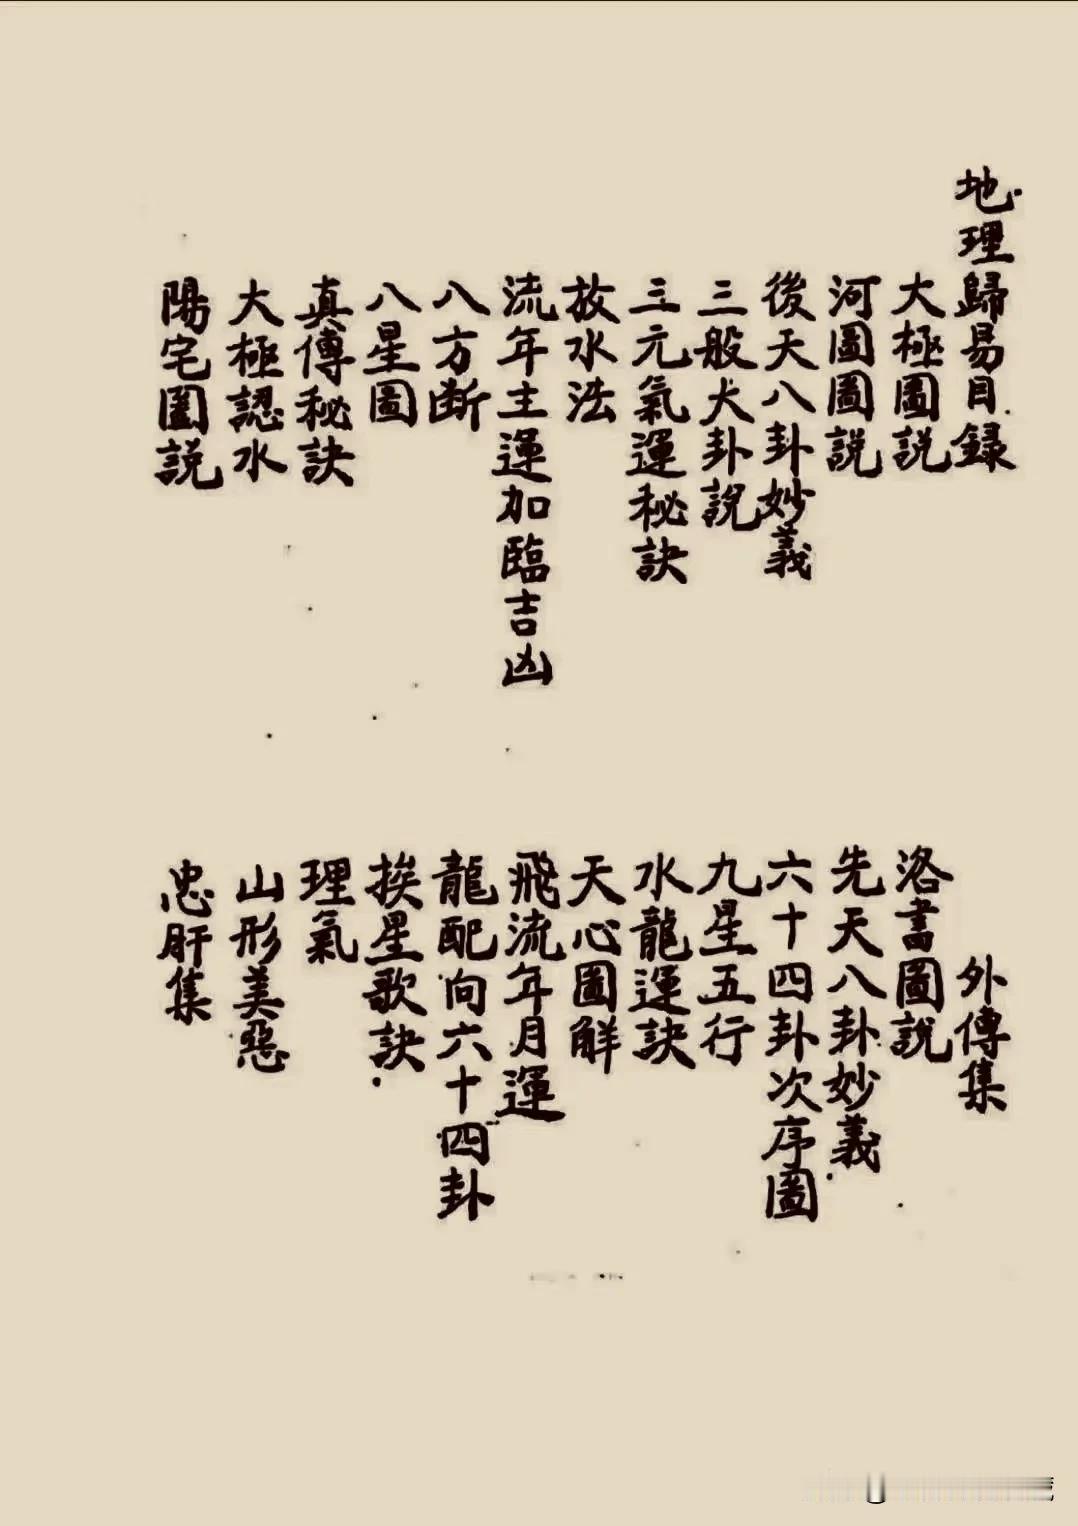 地理歸易目録
外傳集
大極圖説
洛書圖說
河圖圖説
先天八卦妙義
後天八卦妙義
六十四卦次序圖
三般大卦說
九星五行
三元氣運秘訣
水龍運訣
放水法
天心圖解
流年主運加臨吉凶
飛流年月運
八方断
龍配向六十四卦
八星圖
挨星歌訣
真傳秘訣
理氣
大極認水
山形美惡
陽宅圖説
忠肝集